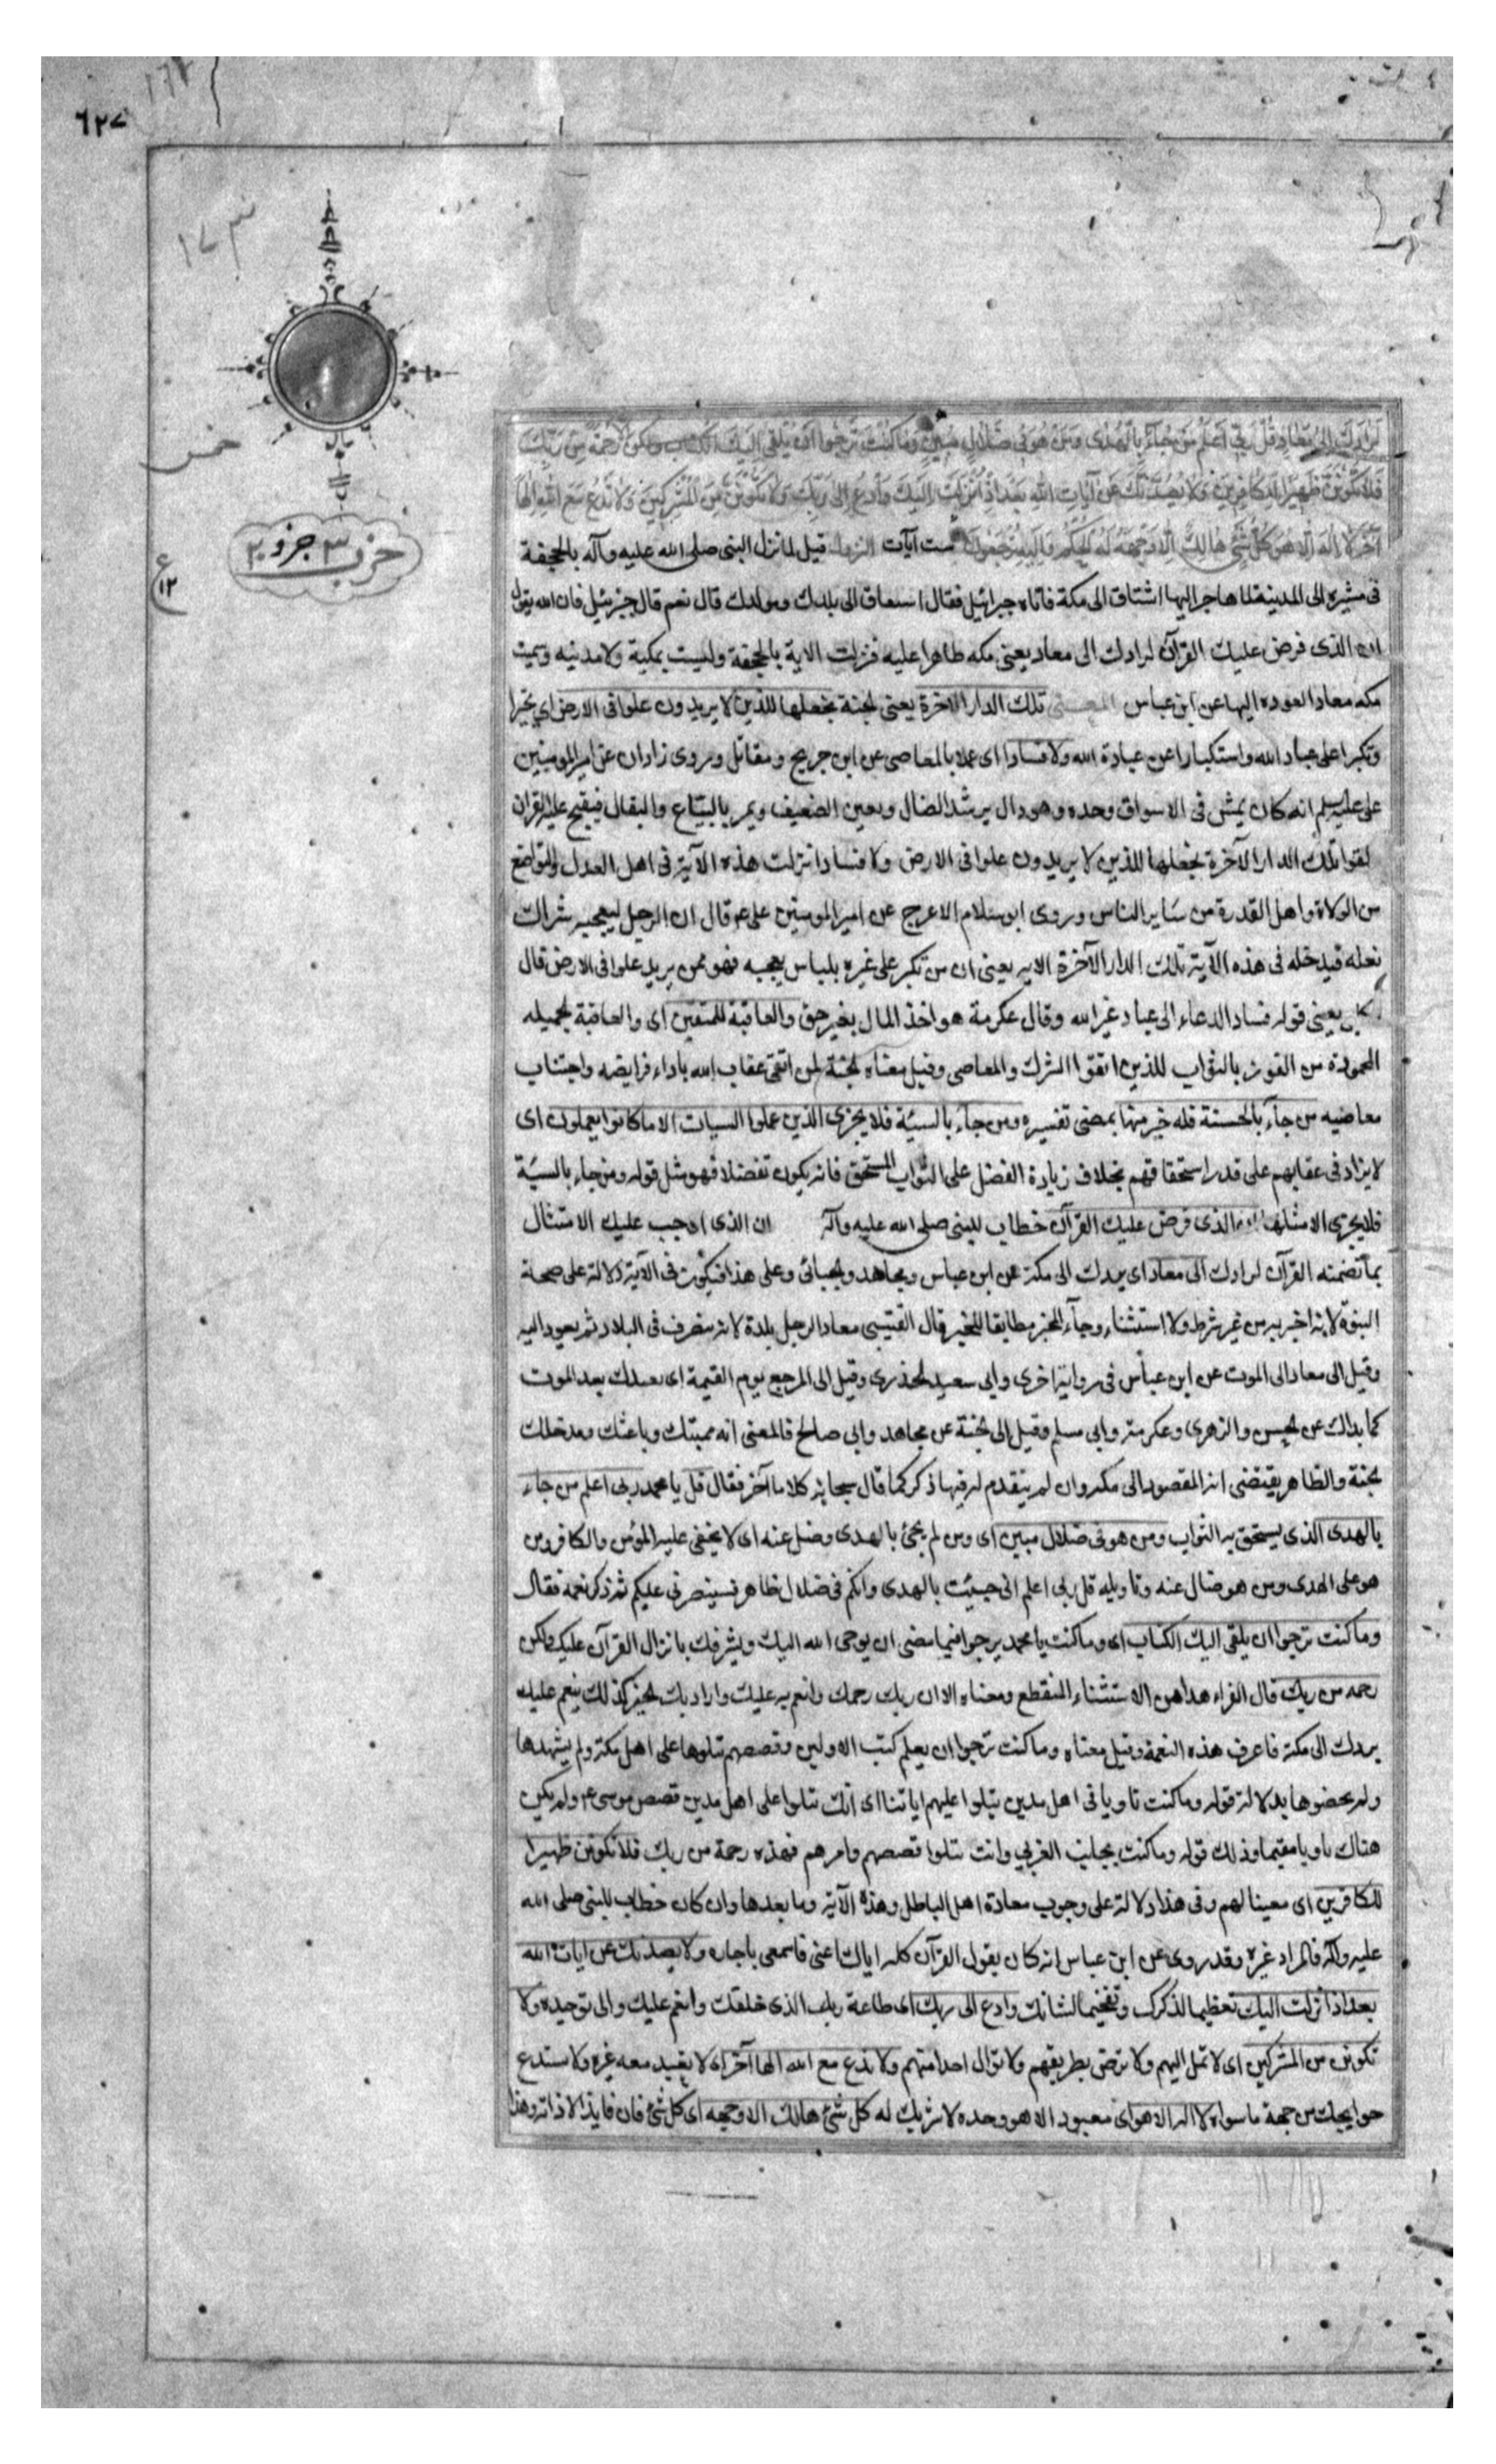 ٦٢٧
١٧٣
خمس
حزب ٣ جزو ٢٠
ع ١٢
لَرَادُّكَ إِلَى مَعَادٍ قُلْ رَبِّي أَعْلَمُ مَنْ جَاءَ بِالْهُدَى وَمَنْ هُوَ فِي ضَلَالٍ مُبِينٍ وَمَا كُنْتَ تَرْجُوا أَنْ يُلْقَى إِلَيْكَ الْكِتَابُ إِلَّا رَحْمَةً مِنْ رَبِّكَ
فَلَا تَكُونَنَّ ظَهِيرًا لِلْكَافِرِينَ وَلَا يَصُدُّنَّكَ عَنْ آيَاتِ اللَّهِ بَعْدَ إِذْ أُنْزِلَتْ إِلَيْكَ وَادْعُ إِلَى رَبِّكَ وَلَا تَكُونَنَّ مِنَ الْمُشْرِكِينَ وَلَا تَدْعُ مَعَ اللَّهِ إِلَهًا
آخَرَ لَا إِلَهَ إِلَّا هُوَ كُلُّ شَيْءٍ هَالِكٌ إِلَّا وَجْهَهُ لَهُ الْحُكْمُ وَإِلَيْهِ تُرْجَعُونَ ست آيات النزول قيل لما نزل النبى صلى الله عليه وآله بالجحفة
فى مسيره الى المدينة لما هاجر اليها اشتاق الى مكة فاتاه جبرائيل فقال اشتاق الى بلدك ومولدك قال نعم قال جبرئيل فان الله يقول
ان الذى فرض عليك القرآن لرادك الى معاد يعنى مكه ظاهرا عليه فنزلت الاية بالجحفة وليست بمكية ولا مدنيه وسميت
مكه معادا لعوده اليها عن ابن عباس المعنى تلك الدار الاخرة يعنى الجنة نجعلها للذين لا يريدون علوا فى الارض اى تجبرا
وتكبرا على عباد الله واستكبارا عن عبادة الله ولا فسادا اى عملا بالمعاصى عن ابن جريج ومقاتل وروى زاذان عن امير المومنين
على عليه السلم انه كان يمشى فى الاسواق وحده وهو دال يرشد الضال ويعين الضعيف ويمر بالبياع والبقال فيفتح عليه القران
ليقوا تلك الدار الآخرة نجعلها للذين لا يريدون علوا فى الارض ولا فسادا نزلت هذه الآية فى اهل العدل والتواضع
من الولاة واهل القدرة من ساير الناس وروى ابو سلام الاعرج عن امير المومنين على ع قال ان الرجل ليعجبه شراك
نعله فيدخله فى هذه الآية تلك الدار الآخرة الايه يعنى ان من تكبر على غيره بلباس يعجبه فهو ممن يريد علوا فى الارض قال
يعنى قوله فسادا الدعاء الى عباد غير الله وقال عكرمة هو اخذ المال بغير حق والعاقبة للمتقين اى والعاقبة الجميله
المحمودة من الفوز بالثواب للذين اتقوا الشرك والمعاصى وقيل معناه الجنة لمن اتقى عقاب الله باداء فرايضه واجتناب
معاصيه من جاء بالحسنة فله خير منها بمضى تفسيره ومن جاء بالسيئة فلا يجزى الذين عملوا السيات الا ما كانوا يعملون اى
لا يزاد فى عقابهم على قدر استحقاقهم بخلاف زيادة الفضل على الثواب المستحق فانه يكون تفضلا فهو مثل قوله ومن جاء بالسيئة
فلا يجزى الا مثلها ان الذى فرض عليك القرآن خطاب للنبى صلى الله عليه وآله ان الذى اوجب عليك الامتثال
بما تضمنه القرآن لرادك الى معاد اى يردك الى مكة عن ابن عباس ومجاهد والجبائى وعلى هذا فيكون فى الآية دلالة على صحة
النبوة لانه اخبر به من غير شرط ولا استثناء وجاء المخبر مطابقا للخبر قال القتيبى معاد الرجل بلده لانه ينصرف فى البلاد ثم يعود اليه
وقيل الى معاد الى الموت عن ابن عباس فى رواية اخرى وابى سعيد الخدرى وقيل الى المرجع يوم القيمة اى يعيدك بعد الموت
كما بداك عن الحسن والزهرى وعكرمة وابى مسلم وقيل الى الجنة عن مجاهد وابى صالح فالمعنى انه مميتك وباعثك ومدخلك
الجنة والظاهر يقتضى انه المقصود الى مكه وان لم يتقدم له فيها ذكر كما قال سبحانه كلاما آخر فقال قل يا محمد ربى اعلم من جاء
بالهدى الذى يستحق به الثواب ومن هو فى ضلال مبين اى ومن لم يجئ بالهدى وضل عنه اى لا يخفى عليه المؤمن والكافر ومن
هو على الهدى ومن هو ضال عنه وتاويله قل ربى اعلم انى جيئت بالهدى وانكم فى ضلال ظاهر فسينصرنى عليكم ثم ذكر نعمه فقال
وما كنت ترجوا ان يلقى اليك الكتاب اى وما كنت يا محمد يرجوا فيما مضى ان يوحى الله اليك ويشرفك بانزال القرآن عليك ولكن
رحمه من ربك قال الفراء هذا من الاستثناء المنقطع ومعناه الا ان ربك رحمك وانعم به عليك واراد بك الخير كذلك ينعم عليك
بردك الى مكة فاعرف هذه النعمة وقيل معناه وما كنت ترجوا ان يعلم كتب الاولين وقصصهم تتلوها على اهل مكة ولم يشهدها
ولم يحضرها بدلالة قوله وما كنت ثاويا فى اهل مدين يتلوا عليهم اياتنا اى انك تتلوا على اهل مدين قصص موسى ع ولم يكن
هناك ثاويا مقيما وذلك قوله وما كنت بجانب الغربى وانت تتلوا قصصهم وامرهم فهذه رحمة من ربك فلا تكونن ظهيرا
للكافرين اى معينا لهم وفى هذا دلالة على وجوب معاداة اهل الباطل وهذه الآية وما بعدها وان كان خطاب للنبى صلى الله
عليه وآله فالمراد غيره وقد روى عن ابن عباس انه كان يقول القرآن كله اياك اعنى فاسمعى يا جاره ولا يصدنك عن ايات الله
بعد اذ انزلت اليك تعظيما لذكرك وتفخيما لشانك وادع الى ربك اى طاعة ربك الذى خلقك وانعم عليك والى توحيده ولا
تكونن من المشركين اى لا تمل اليهم ولا ترض بطريقهم ولا توال احدا منهم ولا تدع مع الله الها آخر اى لا يعبد معه غيره ولا ستدع
حوايجك من جهة ما سواه لا اله الا هو اى معبود الا هو وحده لا شريك له كل شئ هالك الا وجهه اى كل شئ فان فايد الا ذاته وهذا